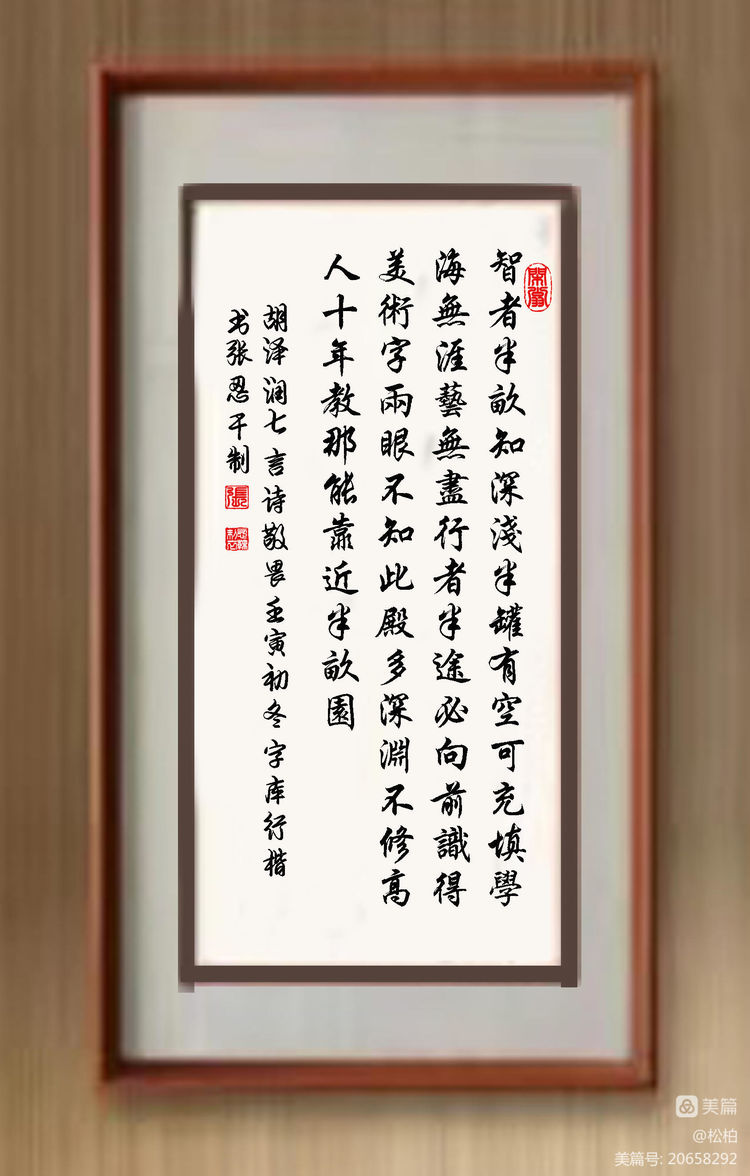 智者半畝知深淺半罐有空可充填學
海無涯藝無盡行者半途必向前識得
美術字兩眼不知此殿多深淵不修高
人十年教那能靠近半畝園
胡泽润七言诗敬畏壬寅初冬字库行楷
书张忍千制
張
美篇
@松柏
美篇号: 20658292